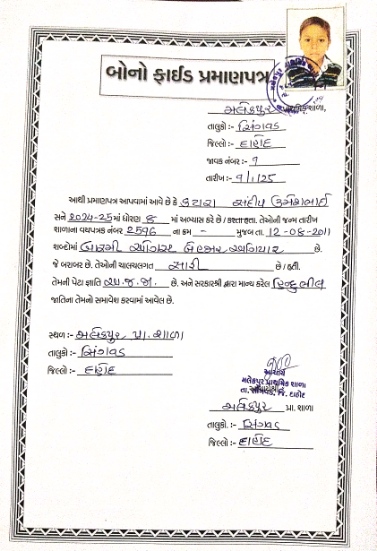 બોનો ફાઈડ પ્રમાણપત્ર
મલેકપુર પ્રાથમિક શાળા,
તાલુકો :- સિંગવડ
જિલ્લો :- દાહોદ
જાવક નંબર :- ૧
તારીખ :- ૧/૧/૨૫
આથી પ્રમાણપત્ર આપવામાં આવે છે કે કટારા સંદીપ ઉમેશભાઈ
સને 2024-25 માં ધોરણ ૮ માં અભ્યાસ કરે છે / કરતા હતા. તેઓની જન્મ તારીખ
શાળાના વયપત્રક નંબર 2596 ના ક્રમ - મુજબ તા. 12-08-2011
શબ્દોમાં બારમી ઓગસ્ટ બેહજાર અગિયાર છે.
જે બરાબર છે. તેઓની ચાલચલગત સારી છે / હતી.
તેમની પેટા જ્ઞાતિ અ.જ.જા. છે. અને સરકારશ્રી દ્વારા માન્ય કરેલ હિન્દુ ભીલ
જાતિના તેમનો સમાવેશ કરવામાં આવેલ છે.
સ્થળ :- મલેકપુર પ્રા. શાળા
તાલુકો :- સિંગવડ
જિલ્લો :- દાહોદ
આચાર્ય
મલેકપુર પ્રાથમિક શાળા
તા. સીંગવડ, જિ. દાહોદ
મલેકપુર પ્રા. શાળા
તાલુકો. :- સિંગવડ
જિલ્લો :- દાહોદ